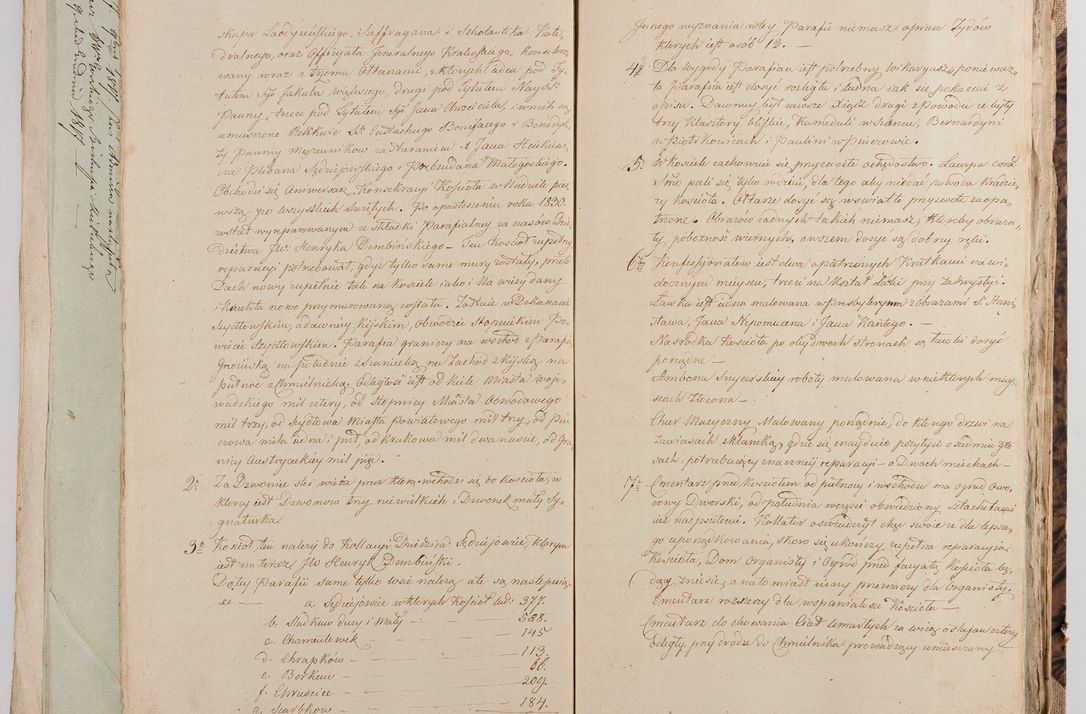 skupa Laodycejskiego, Suffragana i Scholastika Kate,
dralnego, oraz Officyała Jeneralnego Krakowskiego, konsekro,
wany wraz z trzema Ołtarzami, z których jeden pod Ty,
tułem Sgo Jakuba Większego, drugi pod Tytułem Najś:
Panny, trzeci pod Tytułem Sgo Jana Chrzciciela, w nich są
umieszczone Relikwie SS. Eustachego Bonifacego i Benedyk,
ty Panny Męczenników za staraniem X Jana
Plebana Sędziejowskiego i Małogoskiego.
Obchodzi się Aniwersarz Konsekracyi Kościoła w Niedzielę pier,
wszą po wszystkich Świętych. Po spustoszeniu roku 1830.
został wyreparowanym ze składki Parafialney za czasów Dzie
dzictwa JW. Henryka Dembińskiego — Ten kościół zupełney
reparacyi potrzebował, gdyż tylko same mury zostały, przeto
Dach nowy zupełnie tak na kościele iako i Na wieży dany
i nowo przymurowaną została. Zostaie w Dekanacie
Szydłowskim, a dawniey Kijskim, Obwodzie Stopnickim Po,
wiecie Szydłowskim. Parafia graniczy na wschód z Parafią
Gnoińską na południe z Janiną na Zachód z Kijską na
północ z Chmielnicką. Odległość iest od Kielc Miasta Woje,
wódzkiego mil cztery, od Stopnicy Miasta Obwodowego
mil trzy, od Szydłowa Miasta powiatowego mil trzy, od Piń
czowa mila iedna i pół, od Krakowa mil dwanaście, od Gra,
nicy Austryackiey mil pięć.
2o Za Dzwonnicę służy wieża przez którą wchodzi się do kościoła, w
której iest Dzwonów trzy niewielkich i Dzwonek mały Sy,
gnaturka
3o Kościół ten należy do Kollacyi Dziedzica Sędziejowic, którym
iest na teraz JW Henryk Dembiński.
Do tey Parafii same tylko wsie należą ale są następują,
ce — a. Sędziejowice w których Kościół lud: 377.
b. Sładków Duży i Mały — 538.
c. Chomentówek — 145
d. Chrapków — 113.
e. Borków — 66.
f. Chruścice — 209.
g. Skarbków — 184.
Innego wyznania w tey Parafii niemasz oprócz Żydów
których iest osób 12. —
4o Dla wygody Parafian iest potrzebny Wikaryusz, ponieważ
ta Parafia iest dosyć rozległa i ludna jak się pokazuie z
opisu. Dawniej był zawsze Xiądz drugi z powodu że były
trzy klasztory bliskie, Kameduli w Szańcu, Bernardyni
w Piotrkowicach i Paulini w Pińczowie.
5o W kościele zachowuie się przyzwoite ochędóstwo. Lampa coram
Smo pali się tylko w dzień, dla tego aby niedać powodu kradzie,
ży kościoła. Ołtarze dosyć są w światło przyzwoite zaopa,
trzone. Obrazów żadnych takich niemasz, któreby obraża,
ły pobożność wiernych, owszem dosyć są dobrey ręki.
6o Konfessyonałów iest dwa opatrzonych kratkami na wi,
docznym mieyscu, trzeci na kształt przy zakrystyi.
Ławka iest iedna malowana w presbyteryum z obrazami S. Stani,
sława, Jana Nepomucena i Jana Kantego. —
Na środku kościoła po obydwóch stronach są ławki dosyć
porządne —
Ambona Snycerskiey roboty malowana w niektórych miey,
scach złocona —
Chór Muzyczny Malowany porządnie, do którego drzwi na
zawiasach z klamką, gdzie się znayduie pozytyw o siedmiu gło
sach, potrzebujący znaczney reparacyi — o Dwóch miechach —
7o Cmentarz przed Kościołem od północy i wschodu ma ogród owo,
cowy Dworski, od południa wcześci obwiedziony Sztachetami
już napsutemi. Kollator oświadczył chęć swoię że dla lepsze,
go uporządkowania, skoro się ukończy zupełna reparacyia
Kościoła, Dom organisty i Ogród przed facyatą Kościoła bę,
dący, zniesie, a natomiast inny przeznaczy dla Organisty,
Cmentarz rozszerzy dla wspaniałości Kościoła —
Cmentarz do chowania Ciał Umarłych za wsią o staian cztery
odległy, przy drodze do Chmielnika prowadzącey umieszczony